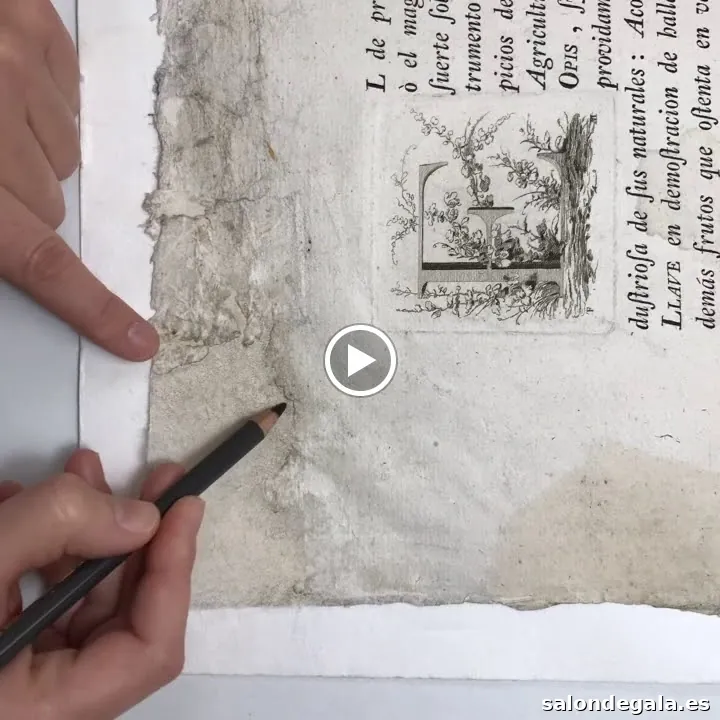 EL de pr
ò el mag
ſuerte ſol
trumento
picios de
Agricultu
OPIS , ſi
providam
duſtrioſa de ſus naturales : Aco
LLAVE en demoſtracion de halla
demás frutos que oſtenta en va
salondegala.es